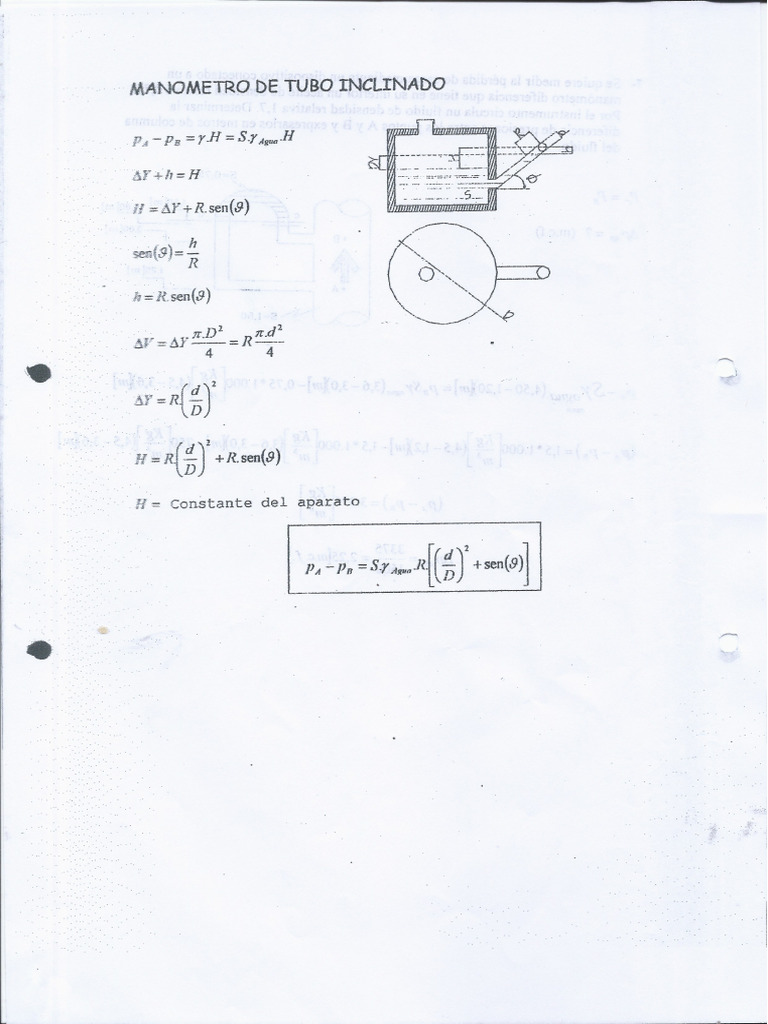 MANOMETRO DE TUBO INCLINADO
p_A − p_B = γ.H = S.γ_Agua.H
ΔY + h = H
H = ΔY + R.sen(ϑ)
sen(ϑ) = h/R
h = R.sen(ϑ)
ΔV = ΔY π.D²/4 = R π.d²/4
ΔY = R.(d/D)²
H = R.(d/D)² + R.sen(ϑ)
H = Constante del aparato
p_A − p_B = S.γ_Agua.R.[(d/D)² + sen(ϑ)]
R
θ
S
D